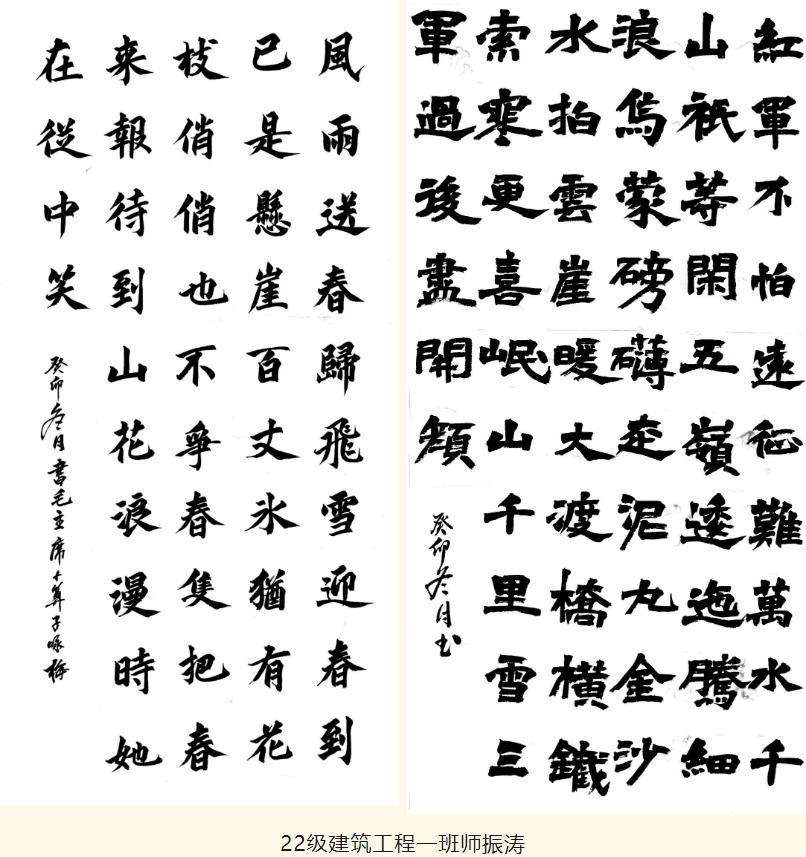 風雨送春歸飛雪迎春到
已是懸崖百丈氷猶有花
枝俏俏也不爭春隻把春
来報待到山花浪漫時她
在從中笑
癸卯冬月書毛主席卜算子咏梅
紅軍不怕遠征難萬水千
山祇等閑五嶺逶迤騰細
浪烏蒙磅礴走泥丸金沙
水拍雲崖暖大渡橋橫鐵
索寒更喜岷山千里雪三
軍過後盡開顔
癸卯冬月书
22级建筑工程一班师振涛